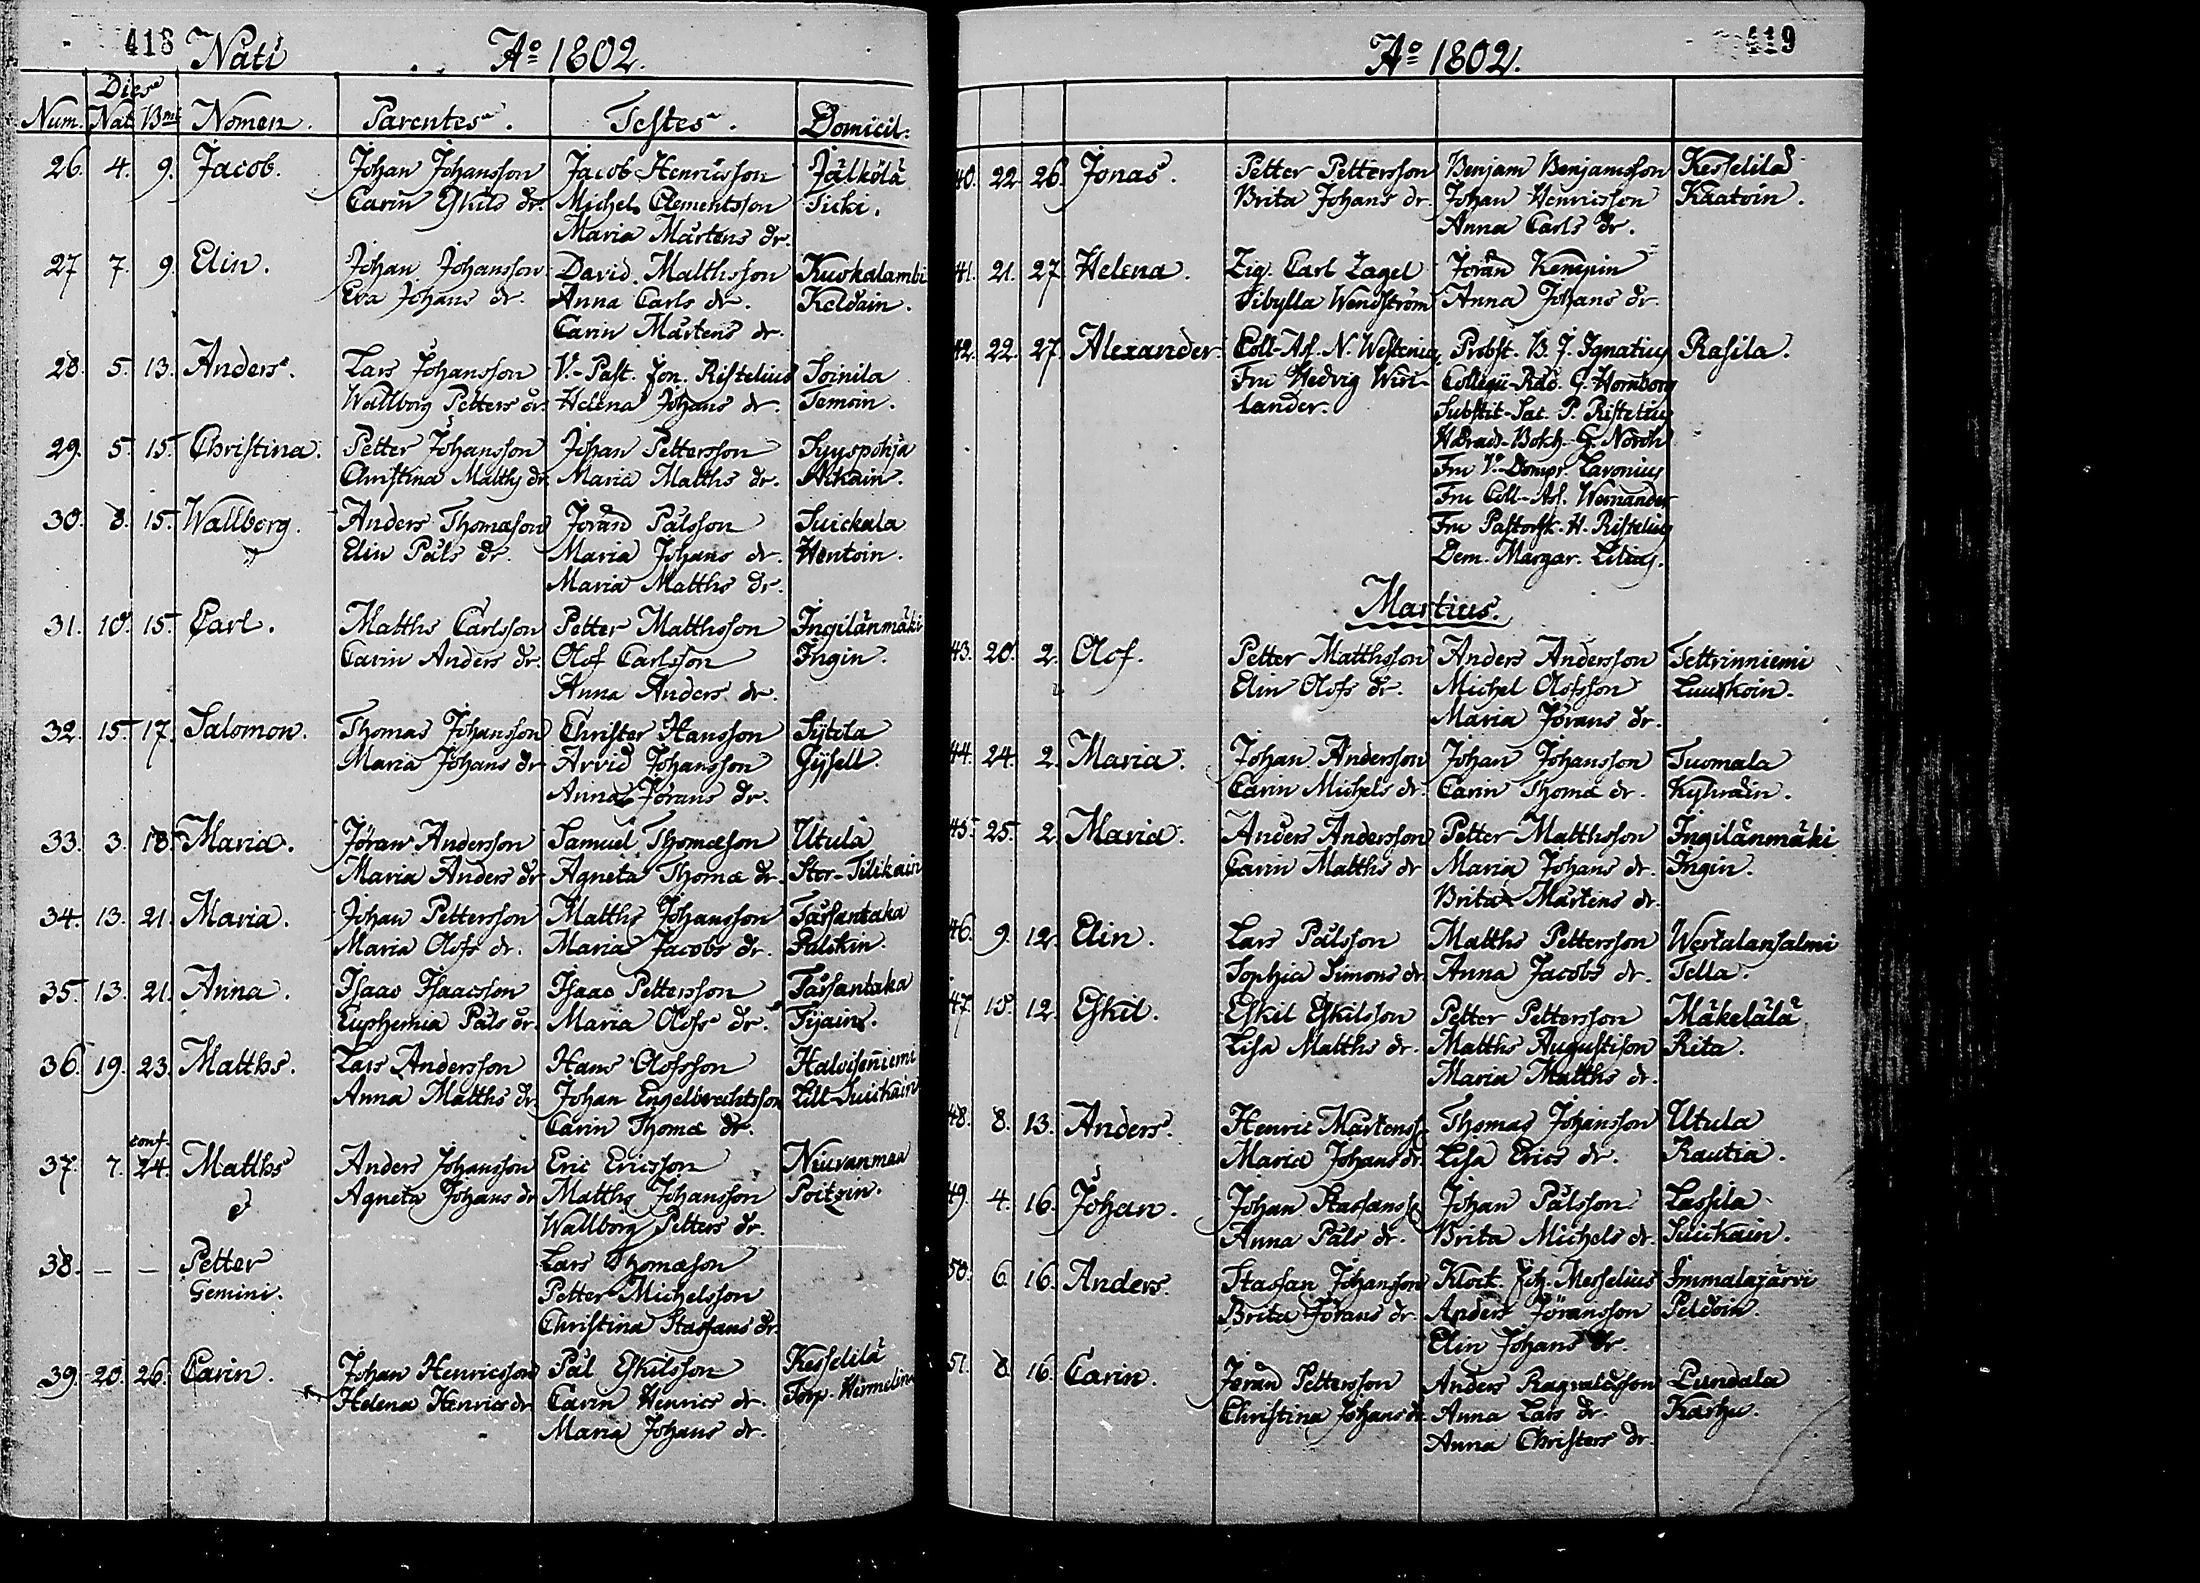 418 Nati Aº 1802.
Dies
Num. Nat Bmi Nomen. Parentes. Testes. Domicil.
26. 4. 9. Jacob. Johan Johansson Jacob Henricsson Jälkölä
Carin Eskils dr. Michel Clementsson Ticki.
Maria Mårtens dr.
27 7. 9. Elin. Johan Johansson David Matthsson Kuokalambi
Eva Johans dr. Anna Carls dr. Keldain.
Carin Mårtens dr.
28. 5. 13. Anders. Lars Johansson V.-Past. Jon. Ristelius Soinila
Wallborg Petters dr. Helena Johans dr. Temoin.
29. 5. 15. Christina. Petter Johansson Johan Pettersson Syyspohja
Christina Matths dr. Maria Matths dr. Akkain.
30. 8. 15. Wallborg. Anders Thomæson Jöran Pålsson Suickala
Elin Påls dr. Maria Johans dr. Hentoin.
Maria Matths dr.
31. 10. 15. Carl. Matths Carlsson Petter Matthsson Ingilänmäki
Carin Anders dr. Olof Carlsson Ingin.
Anna Anders dr.
32. 15. 17. Salomon. Thomas Johansson Christer Hansson Sÿtela
Maria Johans dr Arvid Johansson Gÿsell
Anna Jörans dr.
33. 3. 18. Maria. Jöran Andersson Samuel Thomæson Utula
Maria Anders dr Agneta Thomæ dr. Stor-Tilikain
34. 13. 21. Maria. Johan Pettersson Matths Johansson Tarfantaka
Maria Olofs dr. Maria Jacobs dr. Palckin.
35. 13. 21. Anna. Isaac Isaacsson Isaac Pettersson Tarfantaka
Euphemia Påls dr. Maria Olofs dr. Tijain.
36. 19. 23. Matths. Lars Andersson Hans Olofsson Halvisenniemi
Anna Matths dr. Johan Engelbrechtsson Lill-Suickain
Carin Thomæ dr.
conf.
37. 7. 24. Matths Anders Johansson Eric Ericsson Niuvanmaa
Agneta Johans dr Matths Johansson Poitzin.
Wallborg Petters dr.
38. — — Petter Lars Thomæson
Gemini. Petter Michelsson
Christina Staffans dr.
39. 20. 26. Carin. Johan Henricsson Pål Eskilsson Kesselilä
Helena Henrics dr Carin Henrics dr. Torp. Hirmelin
Maria Johans dr.
Aº 1802. 419
40. 22. 26. Jonas. Petter Pettersson Benjam Benjamsson Kesselilä
Brita Johans dr. Johan Henricsson Kaatoin.
Anna Carls dr.
41. 21. 27. Helena. Zig. Carl Zagel Jöran Kempin
Sibylla Wendström Anna Johans dr.
42. 22. 27. Alexander. Coll-As. N. Westenius Probst. B. J. Ignatius Rasila.
Fru Hedvig Wiri- Collegii-Råd. G. Hornborg
lander. Substit-Sac. P. Ristelius
Härads-Bokh. G. Norrh
Fru V.-Dompr Lavonius
Fru Coll-As. Wernander
Fru Pastorsk. H. Ristelius
Dem. Margar. Lilius.
Martius.
43. 20. 2. Olof. Petter Matthsson Anders Andersson Tettrinniemi
Elin Olofs dr. Michel Olofsson Luuckoin.
Maria Jörans dr.
44. 24. 2. Maria. Johan Andersson Johan Johansson Tuomala
Carin Michels dr. Carin Thomæ dr. Kyhräin.
45. 25. 2. Maria. Anders Andersson Petter Matthsson Ingilänmäki
Carin Matths dr Maria Johans dr. Ingin.
Brita Mårtens dr.
46. 9. 12. Elin. Lars Pålsson Matths Pettersson Wertalansalmi
Sophia Simons dr Anna Jacobs dr. Tella.
47. 10. 12. Eskil. Eskil Eskilsson Petter Pettersson Mäkelälä
Lisa Matths dr. Matths Augustison Rita.
Maria Matths dr.
48. 8. 13. Anders. Henric Mårtenss. Thomas Johansson Utula
Maria Johans dr. Lisa Erics dr. Rautia.
49. 4. 16. Johan. Johan Staffanss Johan Pålsson Lassila
Anna Påls dr. Brita Michels dr. Suickain.
50. 6. 16. Anders. Staffan Johansson Klock. Joh. Messelius Immalajärvi
Brita Jörans dr. Anders Jöransson Peldoin.
Elin Johans dr.
51. 8. 16. Carin. Jöran Pettersson Anders Ragvaldsson Pundala
Christina Johans dr. Anna Lars dr. Karhu.
Anna Christers dr.